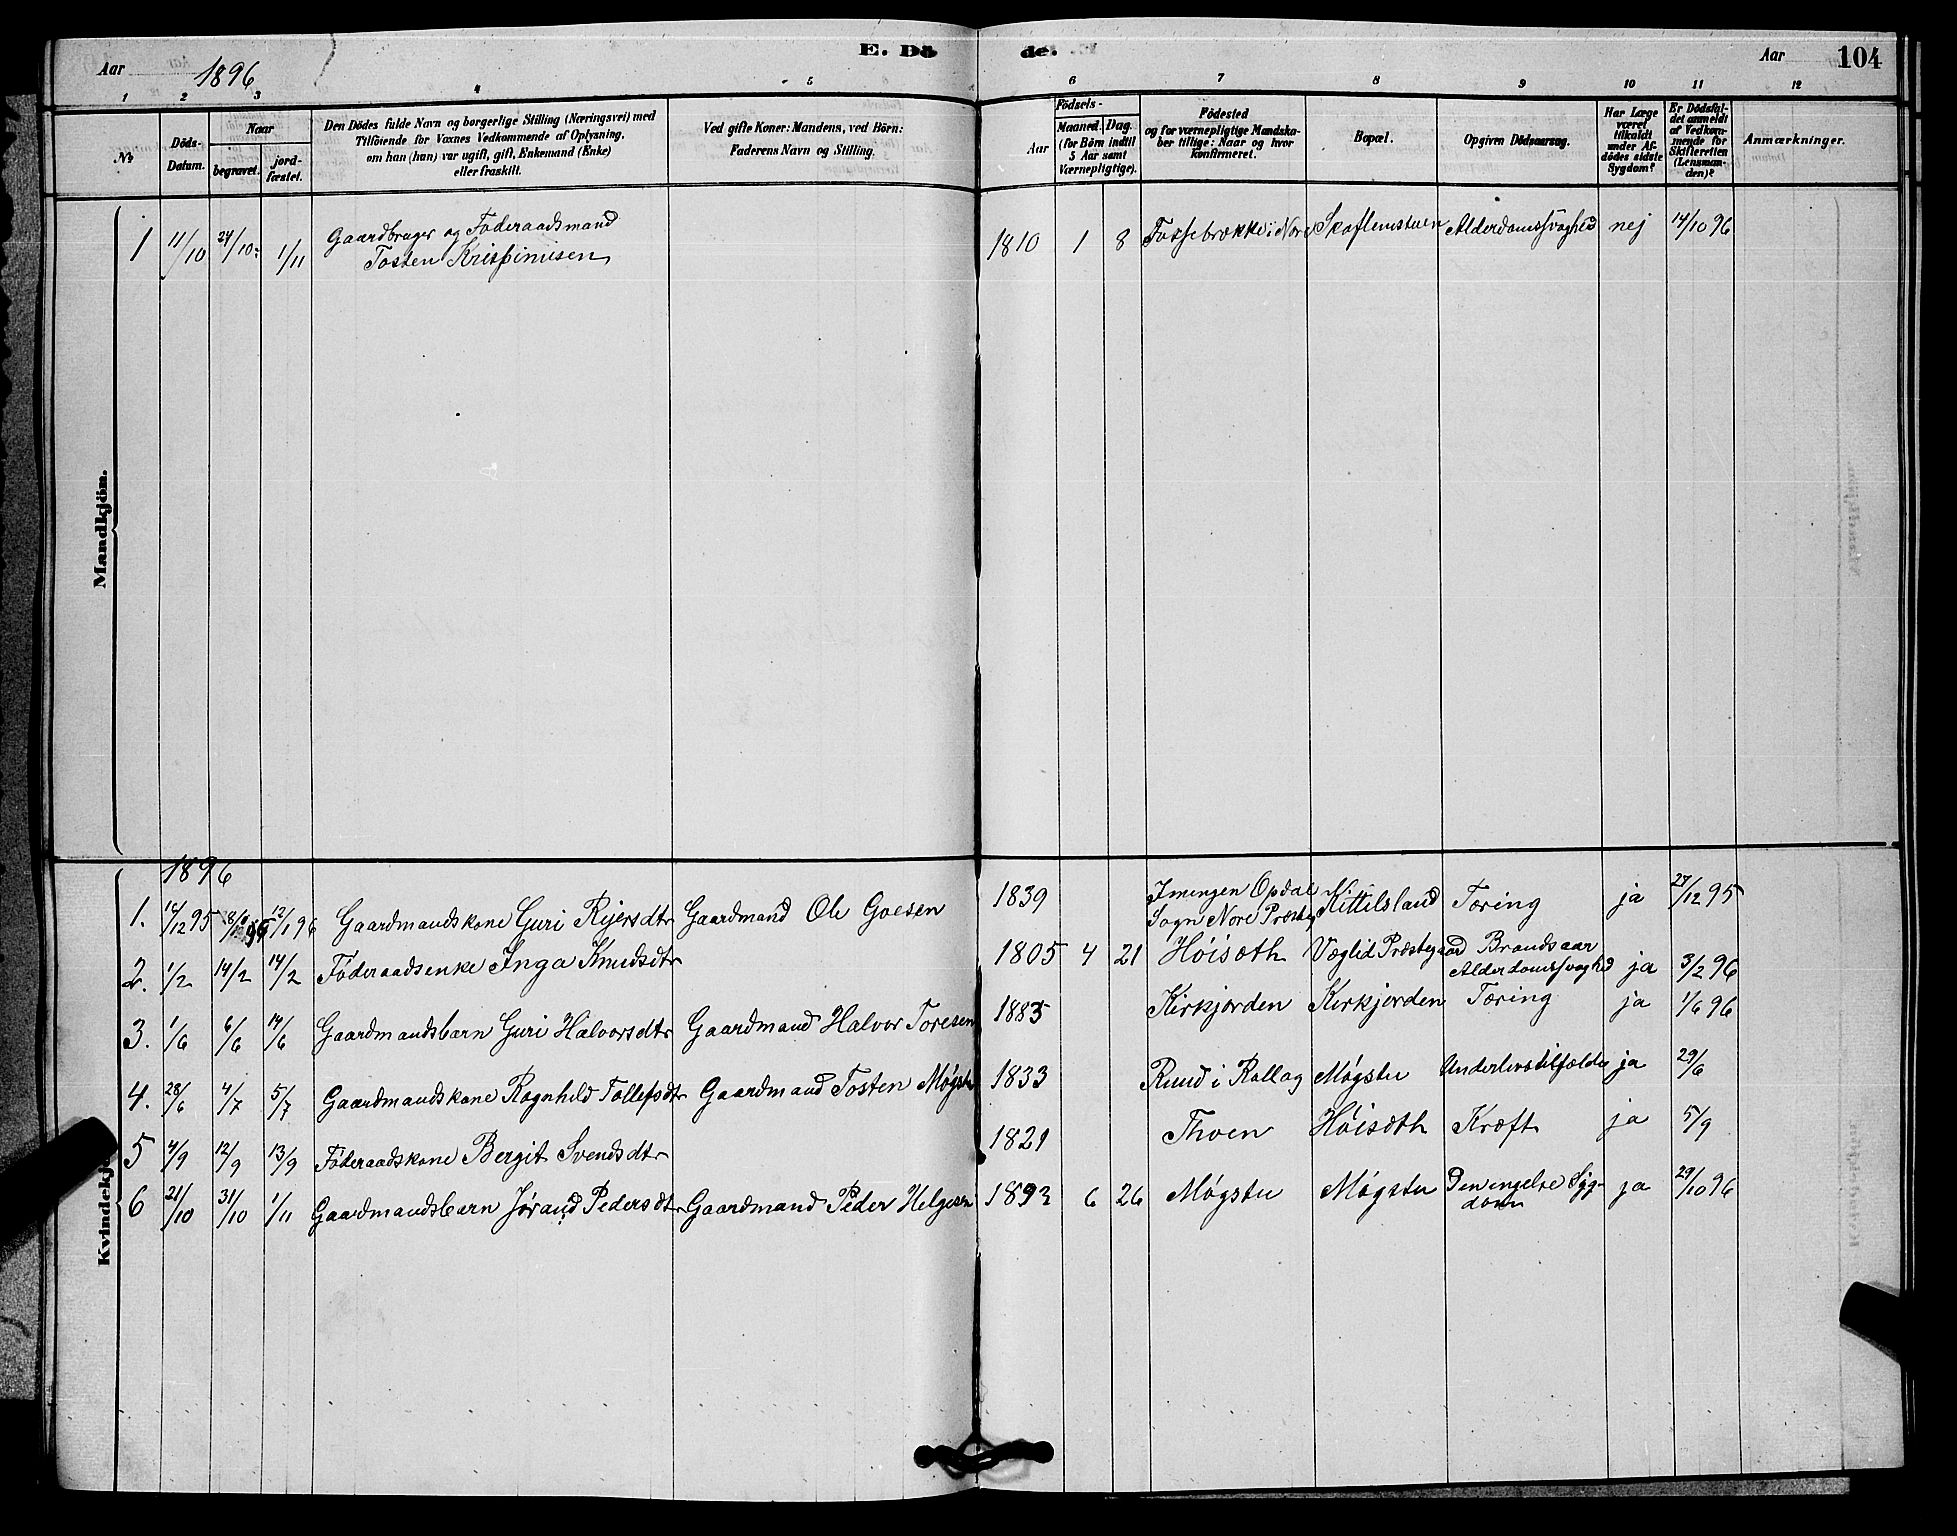 E. Döde.
Aar 1896
Aar 104
1 2 3 4 5 6 7 8 9 10 11 12
No
Döds-Datum.
Naar
begravet.
jord-fæstet.
Den Dödes fulde Navn og borgerlige Stilling (Næringsvei) med
Tilföiende for Voxnes Vedkommende af Oplysning,
om han (hun) var ugift, gift, Enkemand (Enke)
eller fraskilt.
Ved gifte Koner: Mandens, ved Börn:
Faderens Navn og Stilling.
Födsels-
Aar
Maaned. Dag.
(for Börn indtil
5 Aar samt
Værnepligtige).
Födested
og for værnepligtige Mandska-
ber tillige: Naar og hvor
konfirmeret.
Bopæl.
Opgiven Dödsaarsag.
Har Læge
været
tilkaldt
under Af-
dödes sidste
Sygdom?
Er Dödsfal-
det anmeldt
af Vedkom-
mende for
Skifteretten
(Lensman-
den)?
Anmærkninger.
Mandkjön.
1 11/10 24/10 1/11 Gaardbruger og Föderaadsmand
Tosten Krispinusen 1810 1 8 Fossebrække i Nore Skaflemstuen Alderdomssvaghed nej 14/10 96
Kvindekj
1896
1. 12/12 95 12/1 96 Gaardmandskone Guri Reiersdtr Gaardmand Ole Goesen 1839 Imingen Opdal
Sogn Nore Præsteg Kittilsland Tæring ja 27/12 95
2. 1/2 14/2 14/2 Föderaadsenke Inga Knudsdtr 1805 4 21 Höisæth Væglid Præstegaard Brandsaar
Alderdomssvaghed ja 3/2 96
3. 1/6 6/6 14/6 Gaardmandsbarn Guri Halvorsdtr Gaardmand Halvor Toresen 1885 Kirkjorden Kirkjorden Tæring ja 1/6 96
4. 28/6 4/7 5/7 Gaardmandskone Ragnhild Tollefsdtr Gaardmand Tosten Møgstu 1833 Ruud i Rollag Møgstu Underlivstilfælde ja 29/6
5 4/9 12/9 13/9 Föderaadskone Bergit Svendsdtr 1821 Thoen Höisæth Kræft ja 5/9
6 21/10 31/10 1/11 Gaardmandsbarn Jørand Pedersdtr Gaardmand Peder Helgesen 1893 6 26 Møgstu Møgstu Den engelske Syg-
dom ja 29/10 96